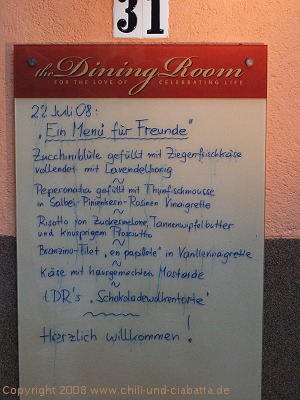 31
the Dining Room
FOR THE LOVE OF CELEBRATING LIFE
22 Juli 08:
„Ein Menü für Freunde“
Zucchiniblüte gefüllt mit Ziegenfrischkäse
vollendet mit Lavendelhonig
~
Peperonata gefüllt mit Thunfischmousse
in Salbei-Pinienkern-Rosinen Vinaigrette
~
Risotto von Zuckermelone, Tannenwipfelbutter
und knusprigem Prosciutto
~
Branzino-Filet „en papillote“ in Vanillevinaigrette
~
Käse mit hausgemachten Mostarde
~
tDR's „Schokoladewolkentorte“
Herzlich willkommen!
Copyright 2008 www.chili-und-ciabatta.de